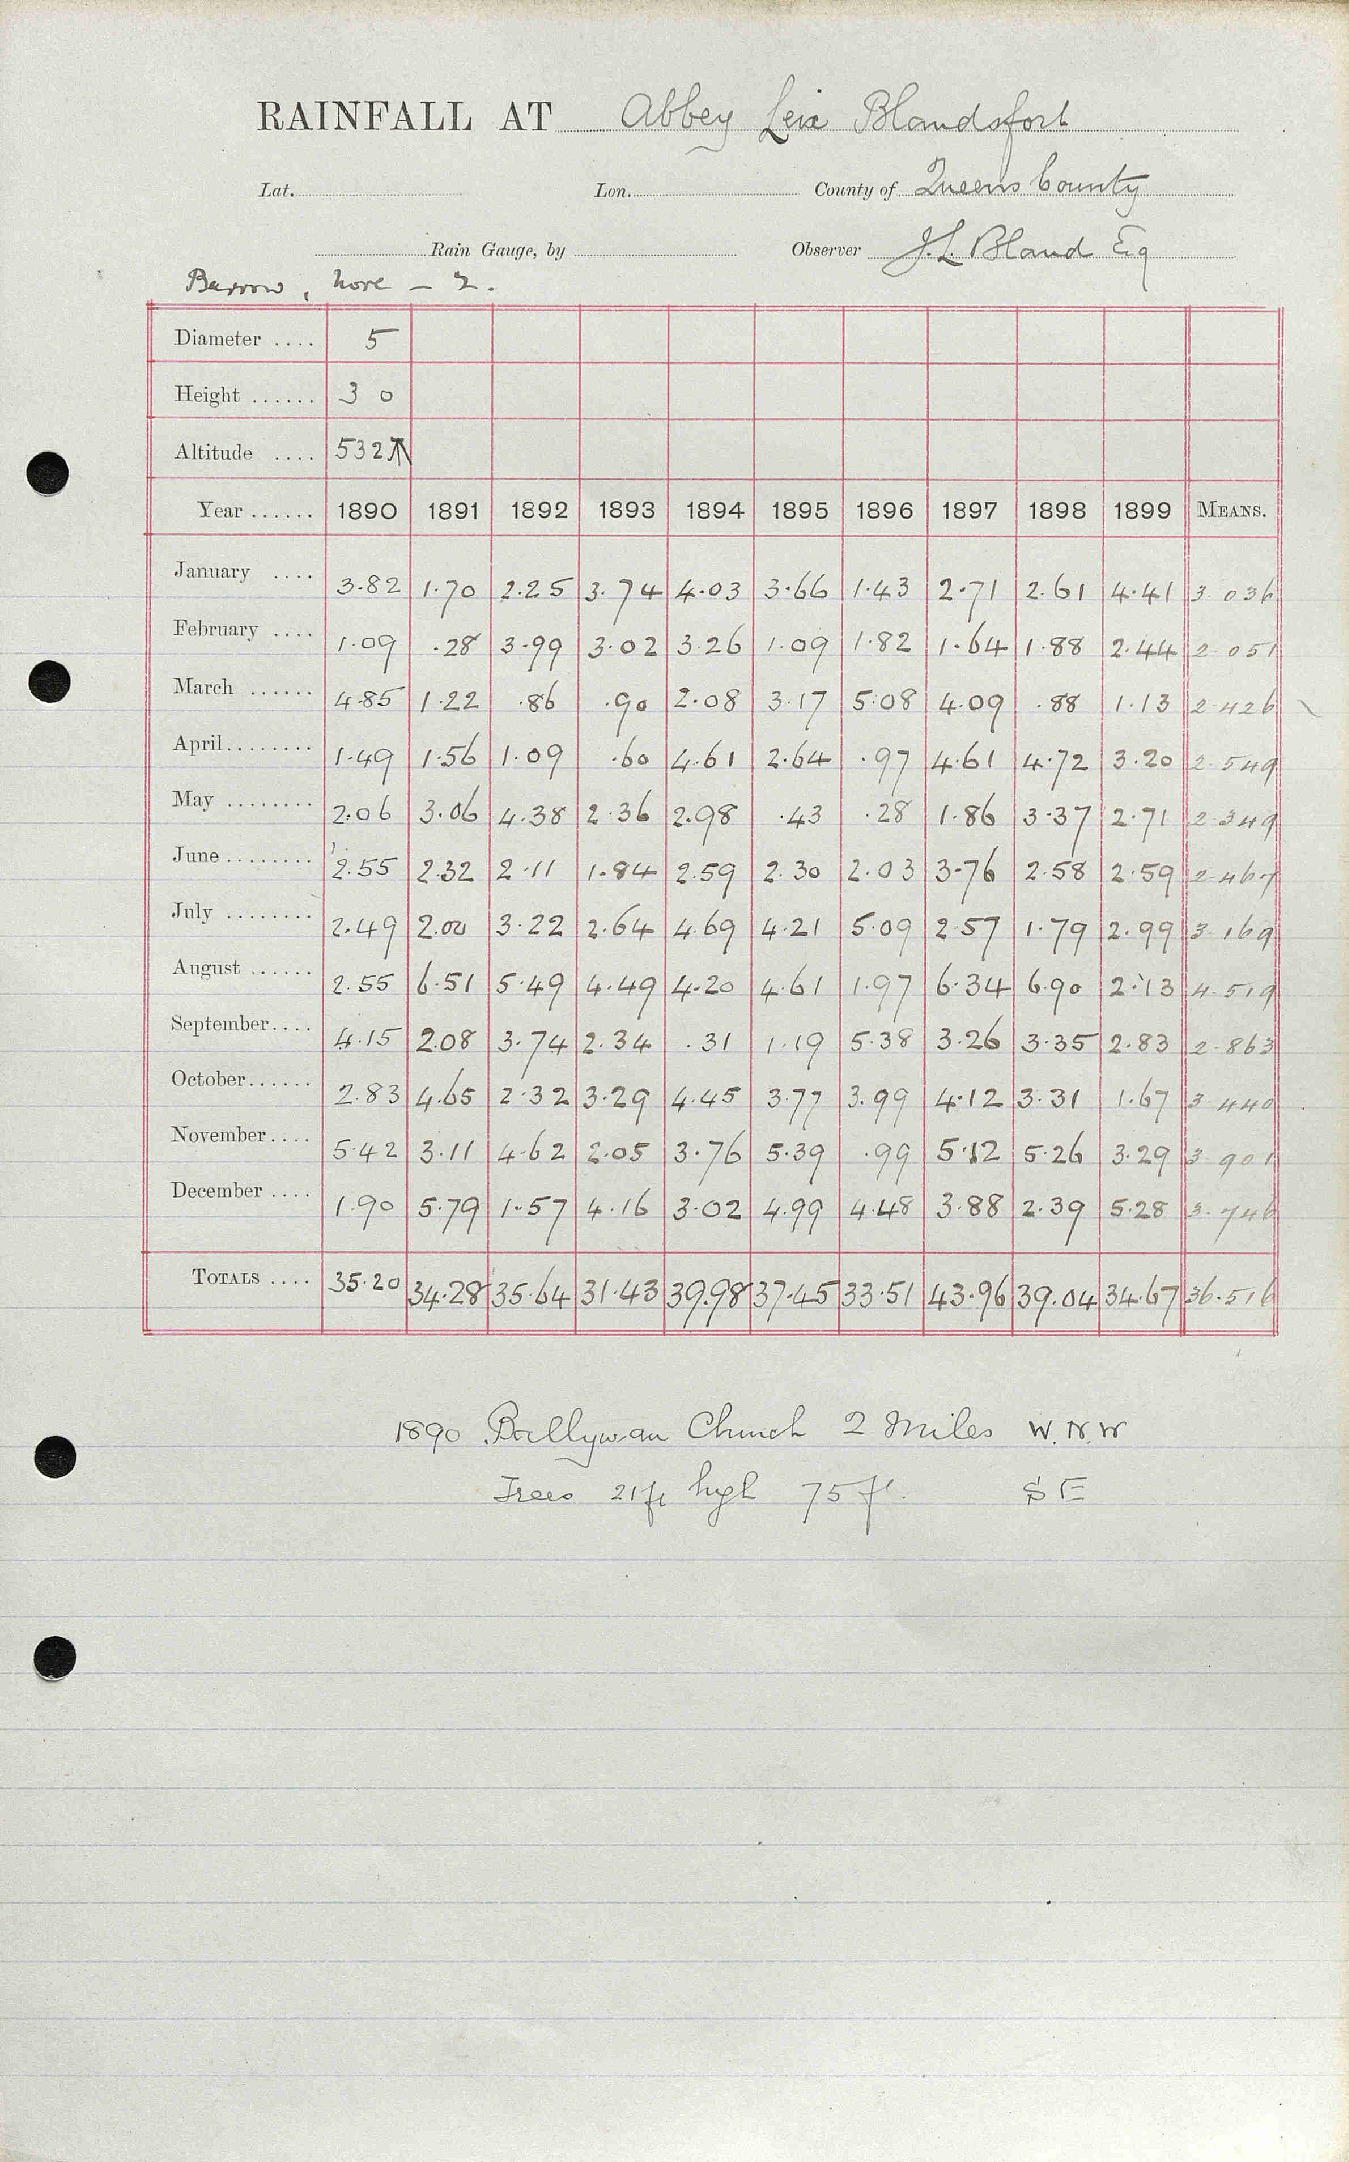 RAINFALL AT Abbey Leix Blandsfort
Lat. Lon. County of Queens County
Rain Gauge, by Observer J.L. Bland Esq
Barrow, Nore - 2.
Diameter .... 5
Height ...... 3 0
Altitude .... 532
Year ...... 1890 1891 1892 1893 1894 1895 1896 1897 1898 1899 MEANS.
January .... 3.82 1.70 2.25 3.74 4.03 3.66 1.43 2.71 2.61 4.41 3.036
February .... 1.09 .28 3.99 3.02 3.26 1.09 1.82 1.64 1.88 2.44 2.051
March ...... 4.85 1.22 .86 .90 2.08 3.17 5.08 4.09 .88 1.13 2.426
April........ 1.49 1.56 1.09 .60 4.61 2.64 .97 4.61 4.72 3.20 2.549
May ........ 2.06 3.06 4.38 2.36 2.98 .43 .28 1.86 3.37 2.71 2.349
June ........ 2.55 2.32 2.11 1.84 2.59 2.30 2.03 3.76 2.58 2.59 2.467
July ........ 2.49 2.00 3.22 2.64 4.69 4.21 5.09 2.57 1.79 2.99 3.169
August ...... 2.55 6.51 5.49 4.49 4.20 4.61 1.97 6.34 6.90 2.13 4.519
September.... 4.15 2.08 3.74 2.34 .31 1.19 5.38 3.26 3.35 2.83 2.863
October...... 2.83 4.65 2.32 3.29 4.45 3.77 3.99 4.12 3.31 1.67 3.440
November.... 5.42 3.11 4.62 2.05 3.76 5.39 .99 5.12 5.26 3.29 3.901
December .... 1.90 5.79 1.57 4.16 3.02 4.99 4.48 3.88 2.39 5.28 3.746
TOTALS .... 35.20 34.28 35.64 31.43 39.98 37.45 33.51 43.96 39.04 34.67 36.516
1890 Ballywan Church 2 Miles W.N.W
Trees 21ft high 75ft. SE